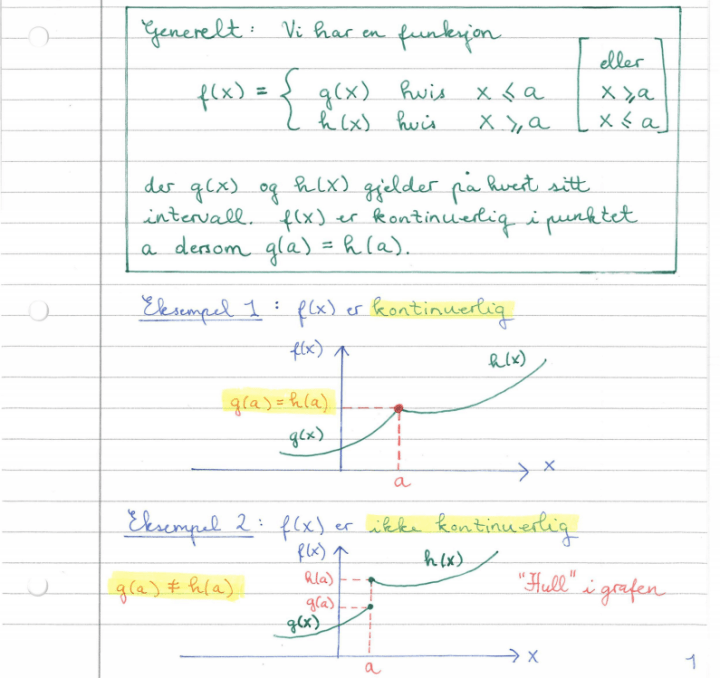 Generelt: Vi har en funksjon
eller
f(x) = { g(x) hvis x ≤ a x ≥ a
h(x) hvis x ≥ a x ≤ a
der g(x) og h(x) gjelder på hvert sitt
intervall. f(x) er kontinuerlig i punktet
a dersom g(a) = h(a).
Eksempel 1: f(x) er kontinuerlig
f(x)
h(x)
g(a) = h(a)
g(x)
x
a
Eksempel 2: f(x) er ikke kontinuerlig
f(x)
h(x)
g(a) ≠ h(a)
h(a)
"Hull" i grafen
g(a)
g(x)
x
a
1